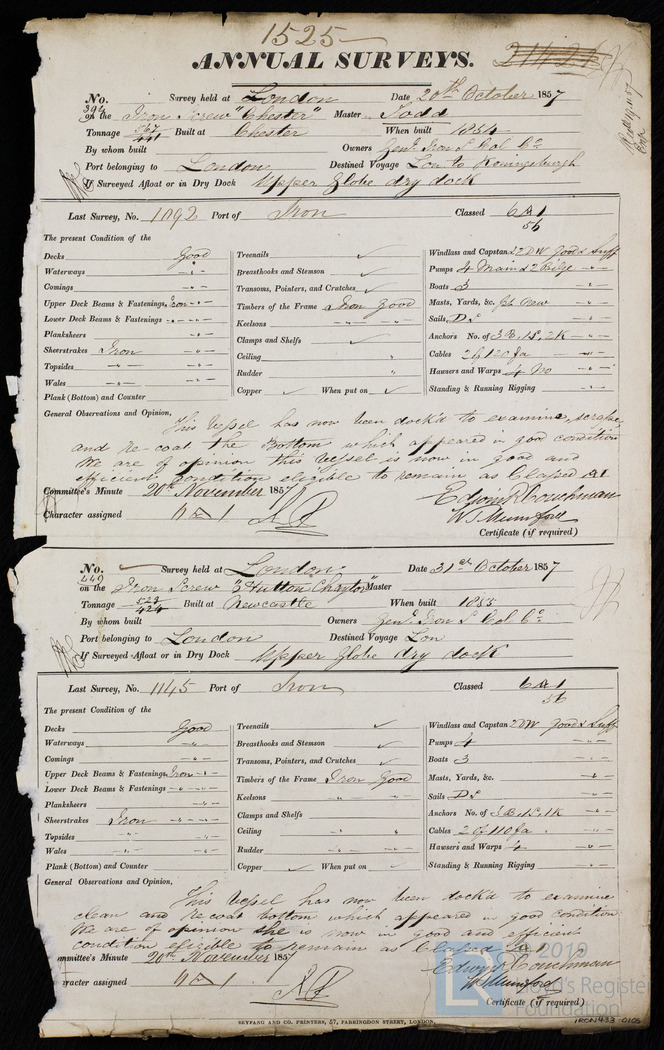 1525
ANNUAL SURVEYS.
No. 394 Survey held at London Date 20th October 1857
on the Iron Screw "Chester" Master Todd
Tonnage 567/441 Built at Chester When built 1854
By whom built Owners Genl. Iron S. Col Co.
Port belonging to London Destined Voyage Lon to Koningsburgh
If Surveyed Afloat or in Dry Dock Upper Globe dry dock
Last Survey, No. 1092 Port of Iron Classed 6 A 1
56
The present Condition of the
Decks Good
Waterways " -
Comings " -
Upper Deck Beams & Fastenings, Iron " -
Lower Deck Beams & Fastenings - " -
Planksheers " -
Sheerstrakes Iron " -
Topsides " - " -
Wales " - " -
Plank (Bottom) and Counter
Treenails ✓
Breasthooks and Stemson ✓
Transoms, Pointers, and Crutches ✓
Timbers of the Frame Iron Good
Keelsons " - " -
Clamps and Shelfs ✓
Ceiling "
Rudder "
Copper ✓ When put on ✓
Windlass and Capstan 2 D W Good & Suff
Pumps 4 Main & 2 Bilge " -
Boats 3 " -
Masts, Yards, &c. New " -
Sails Ds " -
Anchors No. of 3 B, 1S, 2K " -
Cables 2 of 120 fa " -
Hawsers and Warps 4 No " -
Standing & Running Rigging " -
General Observations and Opinion,
This Vessel has now been dock'd to examine, scrape,
and re-coat the Bottom which appeared in good condition
We are of opinion this Vessel is now in good and
efficient condition eligible to remain as Classed A1
Committee's Minute 20th November 1857
Edwin Couchman
W S Mumford
Character assigned 6 A 1
Certificate (if required)
No. 449 Survey held at London Date 31st October 1857
on the Iron Screw "Hutton Chaytor" Master
Tonnage 523/424 Built at Newcastle When built 1853
By whom built Owners Genl. Iron S. Col Co.
Port belonging to London Destined Voyage Lon
If Surveyed Afloat or in Dry Dock Upper Globe dry dock
Last Survey, No. 1145 Port of Iron Classed 6 A 1
56
The present Condition of the
Decks Good
Waterways " -
Comings " -
Upper Deck Beams & Fastenings, Iron " -
Lower Deck Beams & Fastenings - " -
Planksheers " -
Sheerstrakes Iron " -
Topsides " - " -
Wales " - " -
Plank (Bottom) and Counter
Treenails ✓
Breasthooks and Stemson ✓
Transoms, Pointers, and Crutches ✓
Timbers of the Frame Iron Good
Keelsons " - " -
Clamps and Shelfs
Ceiling " "
Rudder " - " -
Copper ✓ When put on ✓
Windlass and Capstan 2 D W Good & Suff
Pumps 4 " -
Boats 3 " -
Masts, Yards, &c. " -
Sails Ds " -
Anchors No. of 3 B, 1S, 1K " -
Cables 2 of 110 fa " -
Hawsers and Warps 4 " -
Standing & Running Rigging " -
General Observations and Opinion,
This Vessel has now been dock'd to examine
clean and re-coat bottom which appeared in good condition
We are of opinion she is now in good and efficient
condition eligible to remain as Classed
ommittee's Minute 20th November 185
Edwin Couchman
W S Mumford
aracter assigned 6 A 1
Certificate (if required)
SEYFANG AND CO. PRINTERS, 57, FARRINGDON STREET, LONDON.
© 2019
Lloyd's Register
Foundation
IRON433-0105